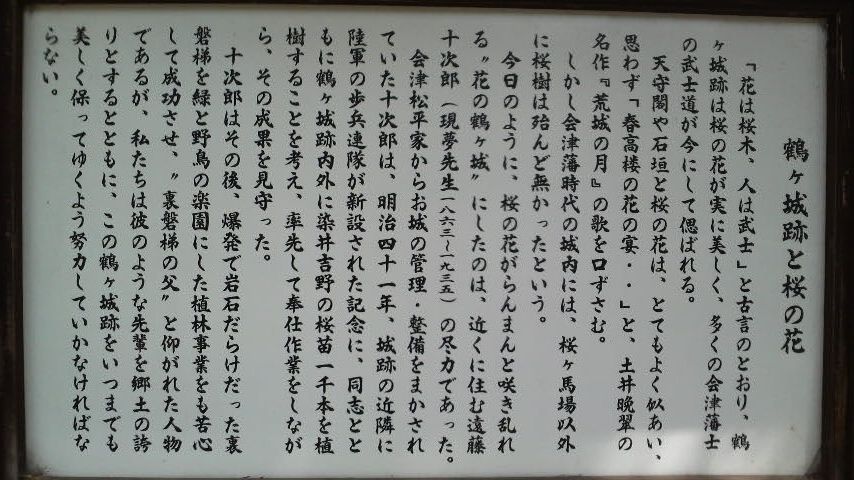 鶴ヶ城跡と桜の花
「花は桜木、人は武士」と古言のとおり、鶴
ヶ城跡は桜の花が実に美しく、多くの会津藩士
の武士道が今にして偲ばれる。
天守閣や石垣と桜の花は、とてもよく似あい、
思わず「春高楼の花の宴・・」と、土井晩翠の
名作『荒城の月』の歌を口ずさむ。
しかし会津藩時代の城内には、桜ヶ馬場以外
に桜樹は殆んど無かったという。
今日のように、桜の花がらんまんと咲き乱れ
る〝花の鶴ヶ城〟にしたのは、近くに住む遠藤
十次郎（現夢先生一八六三〜一九三五）の尽力であった。
会津松平家からお城の管理・整備をまかされ
ていた十次郎は、明治四十一年、城跡の近隣に
陸軍の歩兵連隊が新設された記念に、同志とと
もに鶴ヶ城跡内外に染井吉野の桜苗一千本を植
樹することを考え、率先して奉仕作業をしなが
ら、その成果を見守った。
十次郎はその後、爆発で岩石だらけだった裏
磐梯を緑と野鳥の楽園にした植林事業をも苦心
して成功させ、〝裏磐梯の父〟と仰がれた人物
であるが、私たちは彼のような先輩を郷土の誇
りとするとともに、この鶴ヶ城跡をいつまでも
美しく保ってゆくよう努力していかなければな
らない。